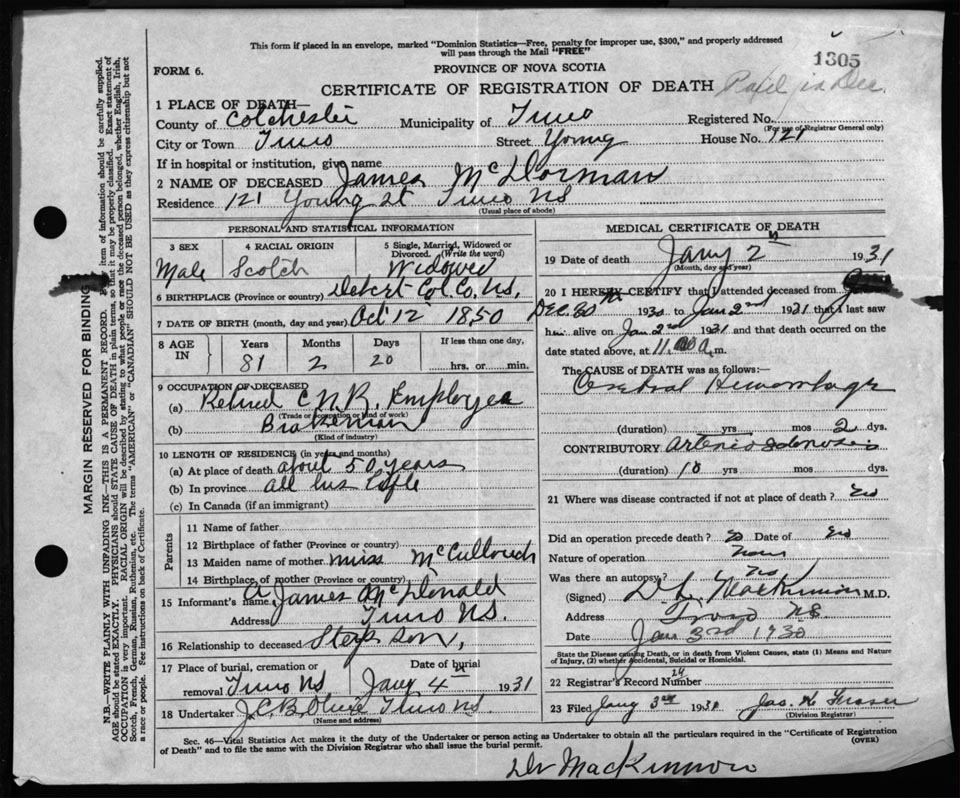 This form if placed in an envelope, marked "Dominion Statistics—Free, penalty for improper use, $300," and properly addressed
will pass through the Mail "FREE"
1305
FORM 6.
PROVINCE OF NOVA SCOTIA
CERTIFICATE OF REGISTRATION OF DEATH
in Dec.
1 PLACE OF DEATH—
County of Colchester Municipality of Truro Registered No.
(For use of Registrar General only)
City or Town Truro Street Young House No. 121
If in hospital or institution, give name
2 NAME OF DECEASED James McDorman
Residence 121 Young St Truro NS
(Usual place of abode)
PERSONAL AND STATISTICAL INFORMATION
3 SEX 4 RACIAL ORIGIN 5 Single, Married, Widowed or Divorced. (Write the word)
Male Scotch Widowed
6 BIRTHPLACE (Province or country) Debert Col. Co. N.S.
7 DATE OF BIRTH (month, day and year) Oct 12 1850
8 AGE IN Years Months Days If less than one day,
81 2 20 hrs. or min.
9 OCCUPATION OF DECEASED
(a) Retired C.N.R. Employee
(Trade or occupation or kind of work)
(b) Brakeman
(Kind of industry)
10 LENGTH OF RESIDENCE (in years and months)
(a) At place of death about 50 years
(b) In province all his life
(c) In Canada (if an immigrant)
Parents
11 Name of father
12 Birthplace of father (Province or country)
13 Maiden name of mother Miss McCullouch
14 Birthplace of mother (Province or country)
15 Informant's name A James McDonald
Address Truro NS.
16 Relationship to deceased Step son,
17 Place of burial, cremation or removal Date of burial
Truro NS Jany 4th 1931
18 Undertaker J.C.B. Truro NS.
(Name and address)
MEDICAL CERTIFICATE OF DEATH
19 Date of death Jany 2n 1931
(Month, day and year)
20 I HEREBY CERTIFY that I attended deceased from
Dec. 30 1930 to Jan 2nd 1931 that I last saw
him alive on Jan 2nd 1931 and that death occurred on the
date stated above, at 11. a.m.
The CAUSE OF DEATH was as follows:—
Cerebral Hemorrhage
(duration) yrs mos 2 dys.
CONTRIBUTORY Arteriosclerosis
(duration) 10 yrs mos dys.
21 Where was disease contracted if not at place of death?
Did an operation precede death? Date of
Nature of operation
Was there an autopsy? No
(Signed) D L MacKinnon M.D.
Address Truro NS
Date Jan 3rd 1930
State the Disease causing Death, or in death from Violent Causes, state (1) Means and Nature
of Injury, (2) whether Accidental, Suicidal or Homicidal.
22 Registrar's Record Number
23 Filed Jany 3rd 1931 Jas. K Fraser
(Division Registrar)
Sec. 46—Vital Statistics Act makes it the duty of the Undertaker or person acting as Undertaker to obtain all the particulars required in the "Certificate of Registration
of Death" and to file the same with the Division Registrar who shall issue the burial permit.
(OVER)
Dr MacKinnon
MARGIN RESERVED FOR BINDING
N.B.—WRITE PLAINLY WITH UNFADING INK—THIS IS A PERMANENT RECORD. item of information should be carefully supplied.
AGE should be stated EXACTLY. PHYSICIANS should STATE CAUSE OF DEATH in plain terms, so that it may be properly classified. Exact statement of
OCCUPATION is very important. RACIAL ORIGIN will be described by stating to what people or race the deceased person belonged, whether English, Irish,
Scotch, French, German, Russian, Ruthenian, etc. The terms "AMERICAN" or "CANADIAN" SHOULD NOT BE USED as they express citizenship but not
a race or people. See instructions on back of Certificate.